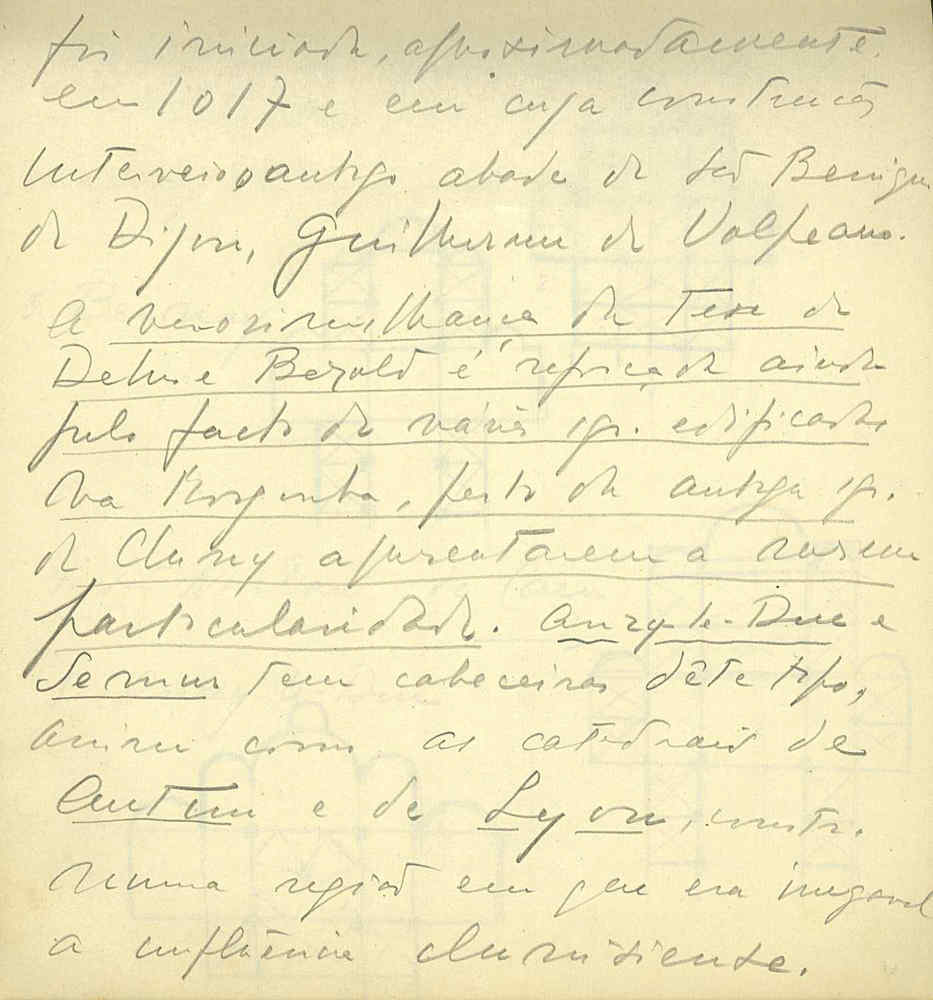 foi iniciada, aproximadamente,
em 1017 e em cuja construção
interveio o antigo abade de São Benigno
de Dijon, Guilherme de Volpeano.
A verosimilhança da tese de
Dehio e Bezold é reforçada ainda
pelo facto de várias igr. edificadas
na Borgonha, perto da antiga igr.
de Cluny apresentarem a mesma
particularidade. Anzy-le-Duc e
Semur tem cabeceiras dêste tipo,
assim como as catedrais de
Autun e de Lyon, constr.
numa região em que era inegavel
a influência clunisiense.